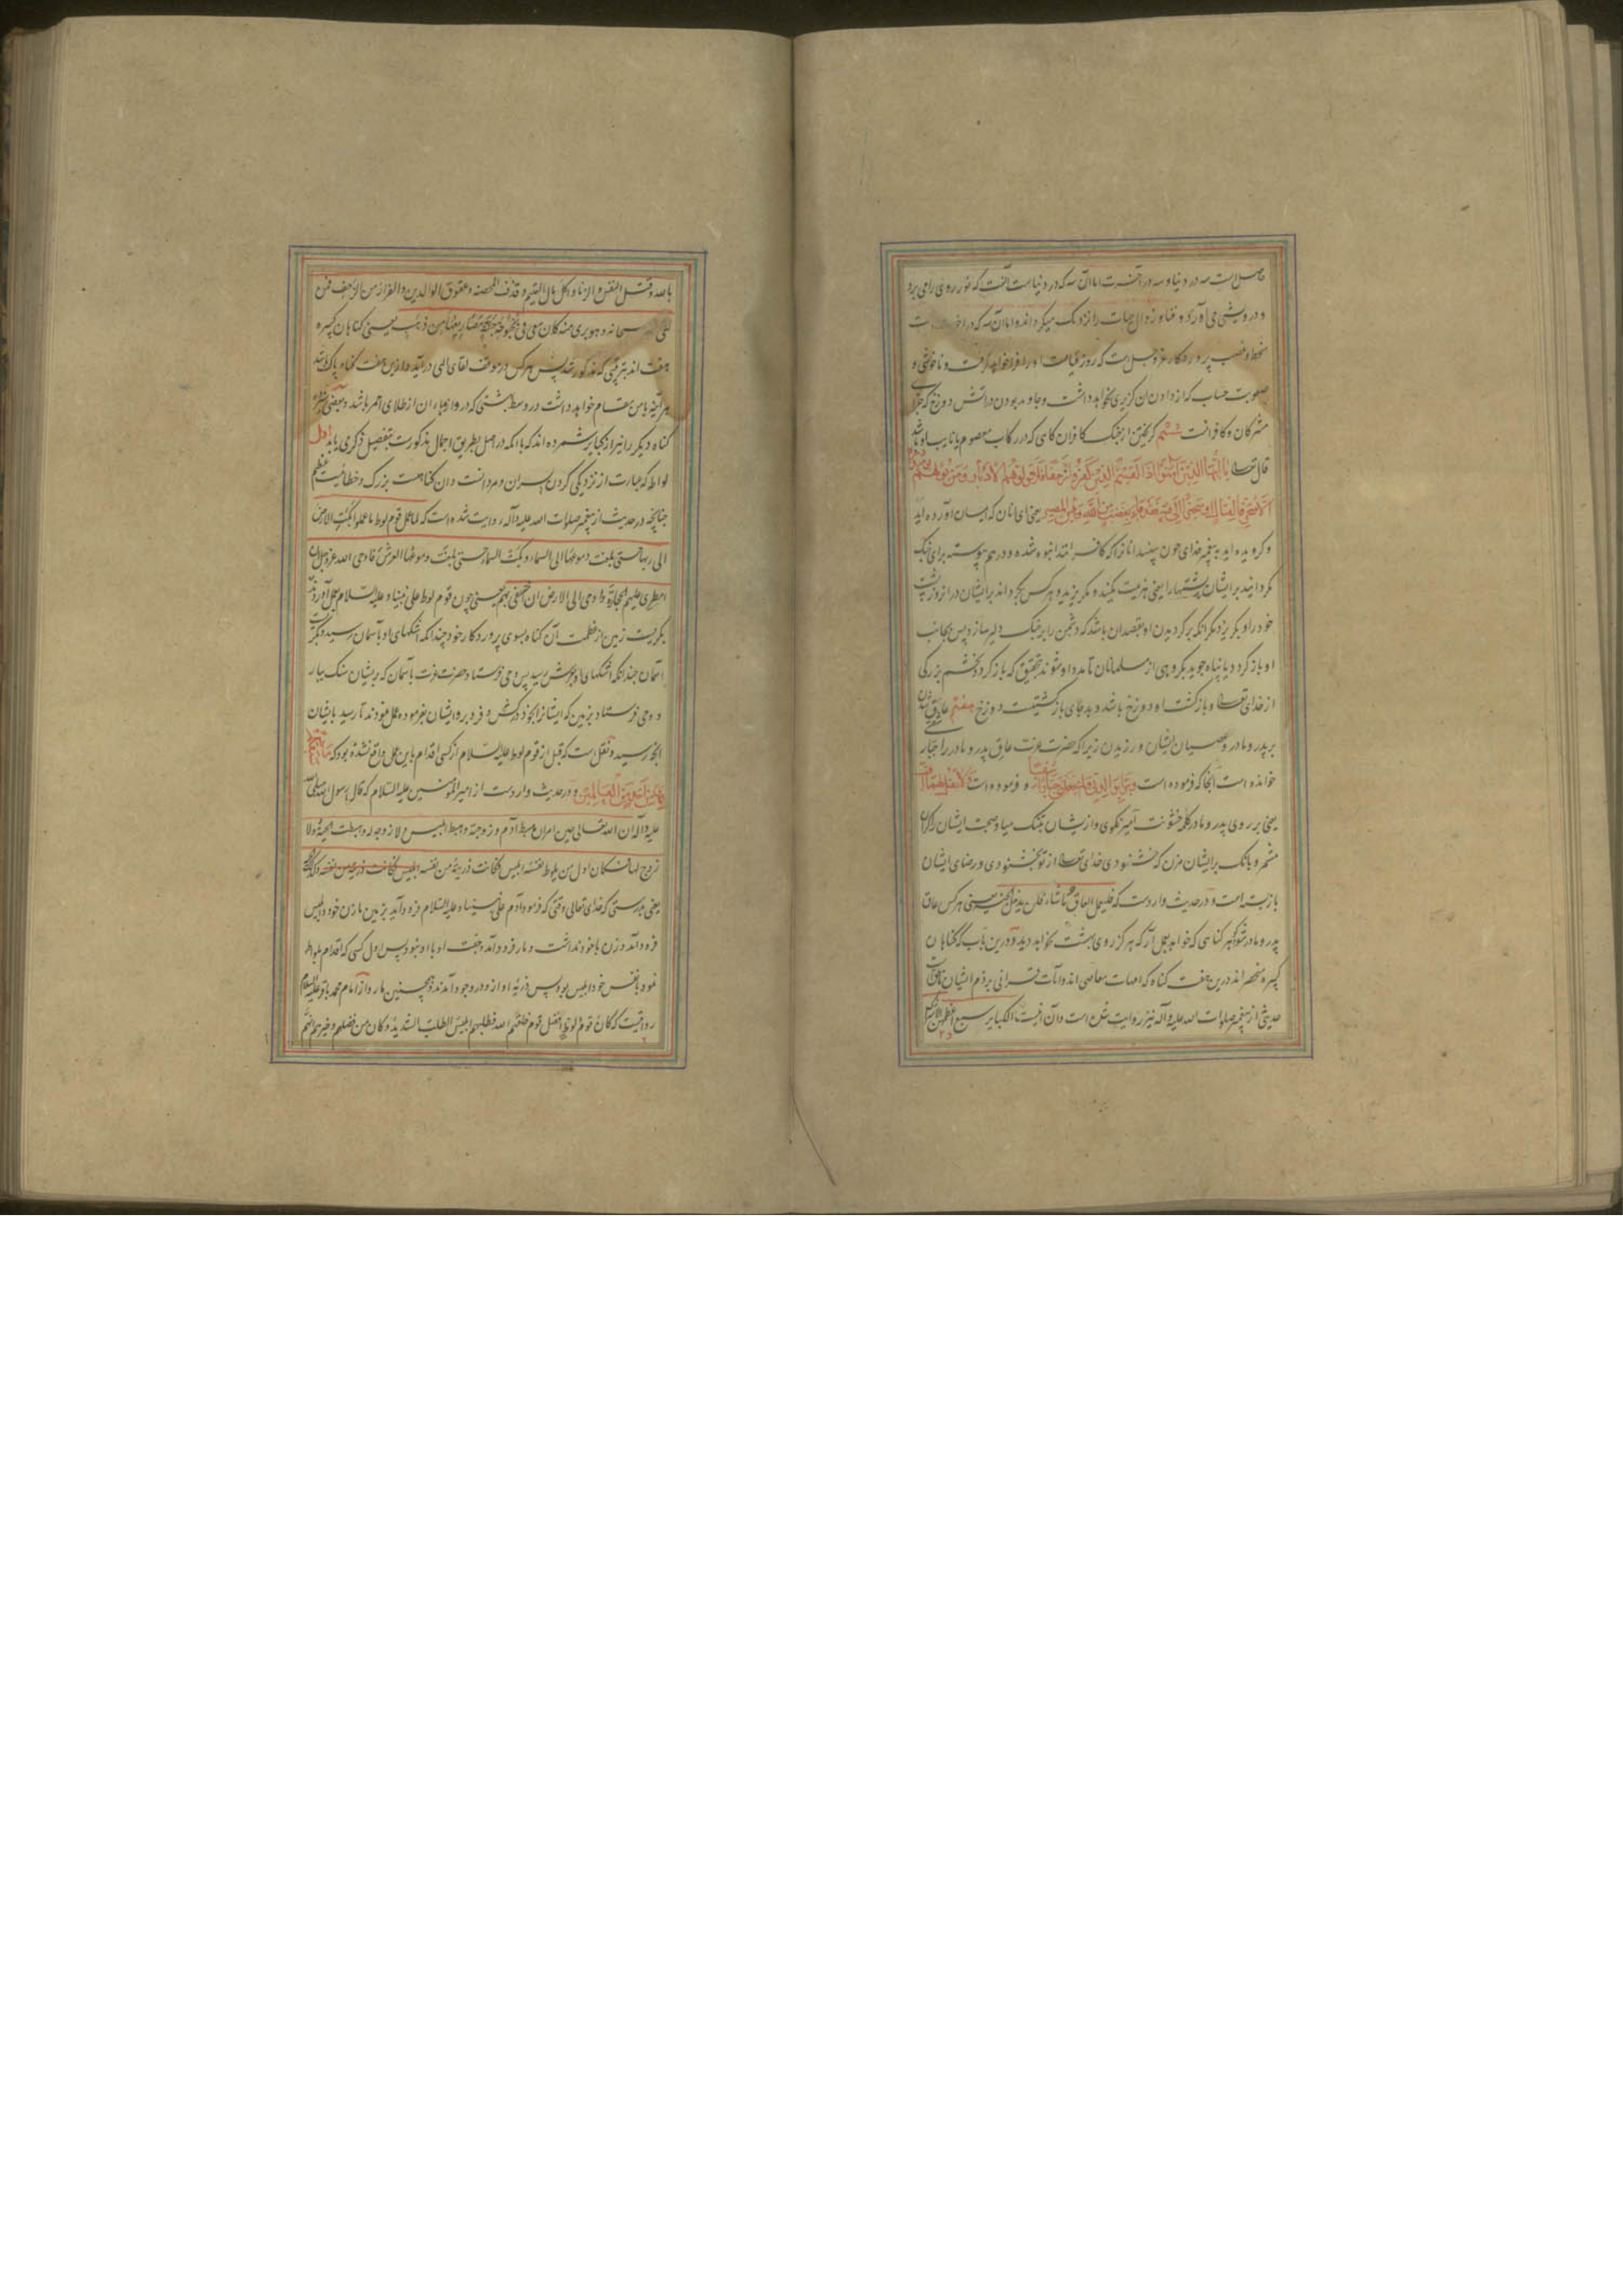 خصلت است سه در دنیا و سه در آخرت اما آن سه که در دنیاست آنست که نور روی را می برد
و درویشی می آورد و فنا و زوال حیات را نزدیک میگرداند و اما آن سه که در
سخط و غضب پروردکار عز و جل است که روز قیامت او را فرا خواهد گرفت و ناخوشی و
صعوبت حساب که از دادن آن گزیری نخواهد داشت و جاوید بودن در آتش دوزخ که جزای
مشرکان و کافرانست ششم کریختن از جنک کافران کاهی که در رکاب معصوم یا نایب او باشد
قال تعالی یا ایها الذین آمنوا اذا لقیتم الذین کفروا زحفا فلا تولوهم الادبار و من یولهم یومئذ دبره
الا متحرفا لقتال او متحیزا الی فئة فقد باء بغضب من الله المصیر یعنی ای آنان که ایمان آورده اید
و کرویده اید به پیغمبر خدای چون ببینید آنانرا که کافر شدند انبوه شده و در هم پیوسته برای جنک
مگردانید بر ایشان پشتها را یعنی هزیمت مکنید و مگریزید و هر کس بگرداند بر ایشان در آنروز پشت
خود را و بگریزد مگر آنکه برگردیدن او بقصد آن باشد که دشمن را بر جنک دلیر سازد پس بجانب
او باز گردد یا پناه جوید بگروهی از مسلمانان تا مدد او شوند بتحقیق که باز گردد بخشم بزرگی
از خدای تعالی و بازگشت او دوزخ باشد و بد جای بازگشتیست دوزخ هفتم عاق شدن
بر پدر و مادر و عصیان ایشان ورزیدن زیرا که حضرت عزت عاق پدر و مادر را جبار شقی
خوانده است آنجا که فرموده است و برا بوالدتی و لم یجعلنی جبارا شقیا و فرموده است و لا تقل لهما اف
یعنی بر روی پدر و مادر کلمه خشونت آمیز مگوی و از ایشان بتنک میا و صحبت ایشان را گران
مشمر و بانک بر ایشان مزن که خشنودی خدای تعالی از تو بخشنودی و رضای ایشان
باز بسته است و در حدیث واردست که فلیعمل العاق ما شاء فلن یدخل الجنة یعنی هر کس عاق
پدر و مادر شد گو هر کناهی که خواهد بعمل آر که هرگز روی بهشت نخواهد دید و درین باب که گناهان
کبیره منحصر اند درین هفت کناه که امهات معاصی اند و آیات قرآنی بر ذم ایشان ناطق است
حدیثی از پیغمبر صلوات الله علیه و آله نیز روایت شده است و آن اینست الکبایر سبع اعظمهن الاشراک
بالله و قتل النفس و الزنا و اکل مال الیتیم و قذف المحصنه و عقوق الوالدین و الفرار من الزحف فمن
لقی الله سبحانه و هو بری منهن کان معی فی بحبوحة جنة مصاریعها من ذهب یعنی کناهان کبیره
هفت اند بترتیبی که مذکور شد پس هر کس در موقف لقای الهی در آید و ازین هفت کناه پاک باشد
هر آینه با من مقام خواهد داشت در وسط بهشتی که دروازهاء آن از طلای احمر باشد و بعضی
کناه دیگر را نیز از کبایر شمرده اند که با آنکه در اصل بطریق اجمال مذکورست بتفصیل ذکری یابد اول
لواطه که عبارت از نزدیکی کردن پسران و مردانست و آن گناهیست بزرک و خطائیست عظیم
چنانچه در حدیث از پیغمبر صلوات الله علیه و آله روایت شده است که لما عمل قوم لوط ما عملوا بکت الارض
الی ربها حتی بلغت دموعها الی السماء و بکت السماء حتی بلغت دموعها العرش فاوحی الله عز و جل الی السماء ان
امطری علیهم الحجارة و اوحی الی الارض ان اخسفی بهم یعنی چون قوم لوط علی نبینا و علیه السلام عمل آوردند
بگریست زمین از عظمت آن گناه بسوی پروردکار خود چندانکه اشکهای او بآسمان رسید و بگریست
آسمان چندانکه اشکهای او بعرش رسید پس وحی فرستاد حضرت عزت بآسمان که بر ایشان سنک ببار
و وحی فرستاد بزمین که ایشانرا بخود درکش و فرو بر و ایشان بفرموده عمل نمودند تا رسید بایشان
آنچه رسید و نقل است که قبل از قوم لوط علیه السلام از کسی اقدام باین عمل واقع نشده بود که ما سبقکم
بها من احد من العالمین و در حدیث واردست از امیر المؤمنین علیه السلام که قال رسول الله صلی الله
علیه و آله ان الله تعالی حین امر ان هبط آدم و زوجته و هبط ابلیس و لا زوجة له و هبطت الحیة و لا
زوج لها فکان اول من یلوط بنفسه ابلیس فکانت ذریته من نفسه
یعنی بدرستی که خدای تعالی وقتی که فرمود آدم علی نبینا و علیه السلام فرود آمد بزمین با زن خود و ابلیس
فرود آمد و زن با خود نداشت و مار فرود آمد و جفت او با او نبود پس اول کسی که اقدام بلواطه
نمود بنفس خود ابلیس بود پس ذریه او از و در وجود آمدند و همچنین مار و از امام محمد باقر علیه السلام
روایتست که کان قوم لوط افضل قوم خلقهم الله فطلبهم ابلیس الطلب الشدید و کان من فضلهم و خیرهم انهم